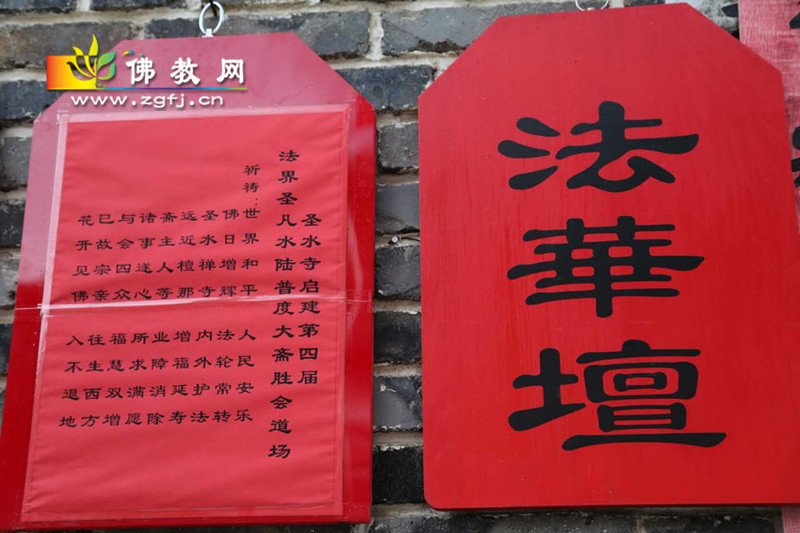 佛教网
www.zgfj.cn
圣水寺启建第四届
法界圣凡水陆普度大斋胜会道场
祈祷：
世界和平 人民安乐
佛日增辉 法轮常转
圣水禅寺 内外护法
远近檀那 增福延寿
斋主人等 业障消除
诸事遂心 所求满愿
与会四众 福慧双增
已故宗亲 往生西方
花开见佛 入不退地
法華壇